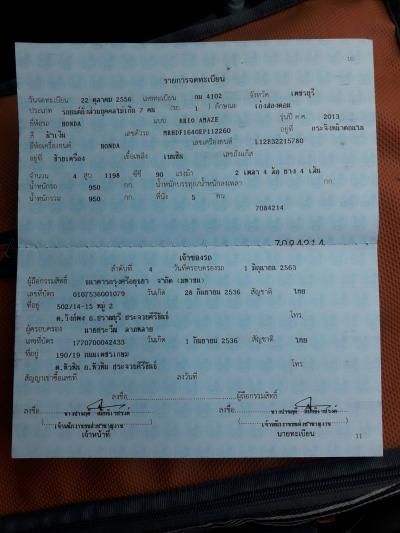 10
รายการจดทะเบียน
วันจดทะเบียน 22 ตุลาคม 2556 เลขทะเบียน กม 4102 จังหวัด เพชรบุรี
ประเภท รถยนต์นั่งส่วนบุคคลไม่เกิน 7 คน (รย. 1 ) ลักษณะ เก๋งสองตอน
ยี่ห้อรถ HONDA แบบ BRIO AMAZE รุ่นปี ค.ศ. 2013
สี น้ำเงิน เลขตัวรถ MRHDF1640EP112260 อยู่ที่
ยี่ห้อเครื่องยนต์ HONDA เลขเครื่องยนต์ L12B32215780
อยู่ที่ ซ้ายเครื่อง เชื้อเพลิง เบนซิน เลขถังแก๊ส
จำนวน 4 สูบ 1198 ซีซี 90 แรงม้า 2 เพลา 4 ล้อ ยาง 4 เส้น
น้ำหนักรถ 950 กก. น้ำหนักบรรทุก/น้ำหนักลงเพลา กก.
น้ำหนักรวม 950 กก. ที่นั่ง 5 คน
7084214
7084214
เจ้าของรถ
ลำดับที่ 4 วันที่ครอบครองรถ 1 มิถุนายน 2563
ผู้ถือกรรมสิทธิ์ ธนาคารกรุงศรีอยุธยา จำกัด (มหาชน)
เลขที่บัตร 0107536001079 วันเกิด 28 กันยายน 2536 สัญชาติ ไทย
ที่อยู่ 502/14-15 หมู่ 2
ต.วังก์พง อ.ปราณบุรี ประจวบคีรีขันธ์ โทร.
ผู้ครอบครอง
เลขที่บัตร 1770700042433 วันเกิด 1 กันยายน 2536 สัญชาติ ไทย
ที่อยู่ 190/19 ถนนเพชรเกษม
ต.หัวหิน อ.หัวหิน ประจวบคีรีขันธ์ โทร
สัญญาเช่าซื้อเลขที่ ลงวันที่
ลงชื่อ ผู้ถือกรรมสิทธิ์
ลงชื่อ ลงชื่อ
เจ้าหน้าที่ นายทะเบียน
11